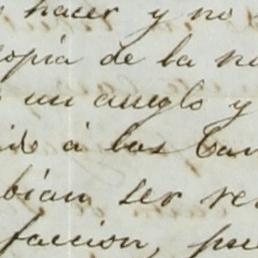 hacer y no
copia de la n
un aueglo y
á las Can
bian ser re
faccion, pu